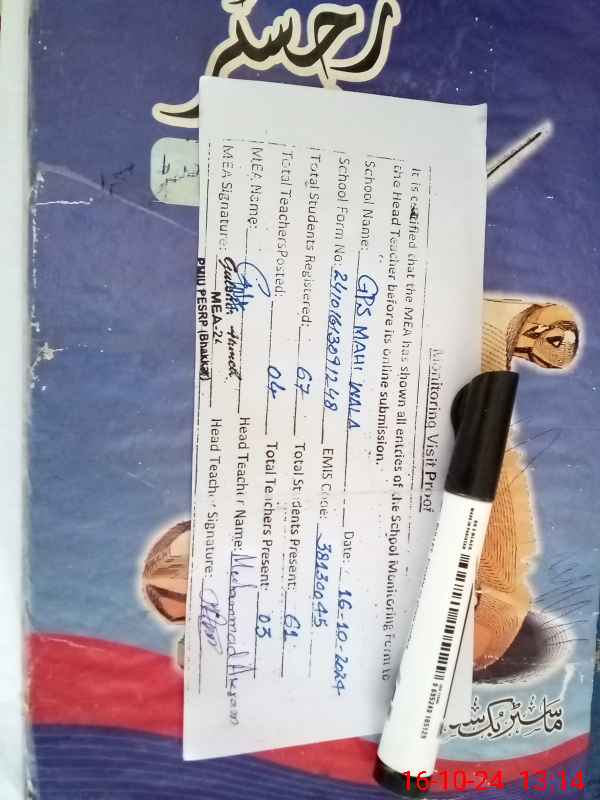 رجسٹر
Monitoring Visit Proof
It is certified that the MEA has shown all entries of the School Monitoring Form to
the Head Teacher before its online submission.
School Name: GPS MAHI WALA Date: 16-10-2024
School Form No: 24101613091248 EMIS Code: 38130045
Total Students Registered: 67 Total Students Present: 61
Total TeachersPosted: 04 Total Teachers Present: 03
MEA Name: Head Teacher Name: Muhammad
MEA Signature: Head Teacher Signature:
MEA-2
PMIU PESRP (Bhakkar)
ماسٹر بک
16-10-24 13:14